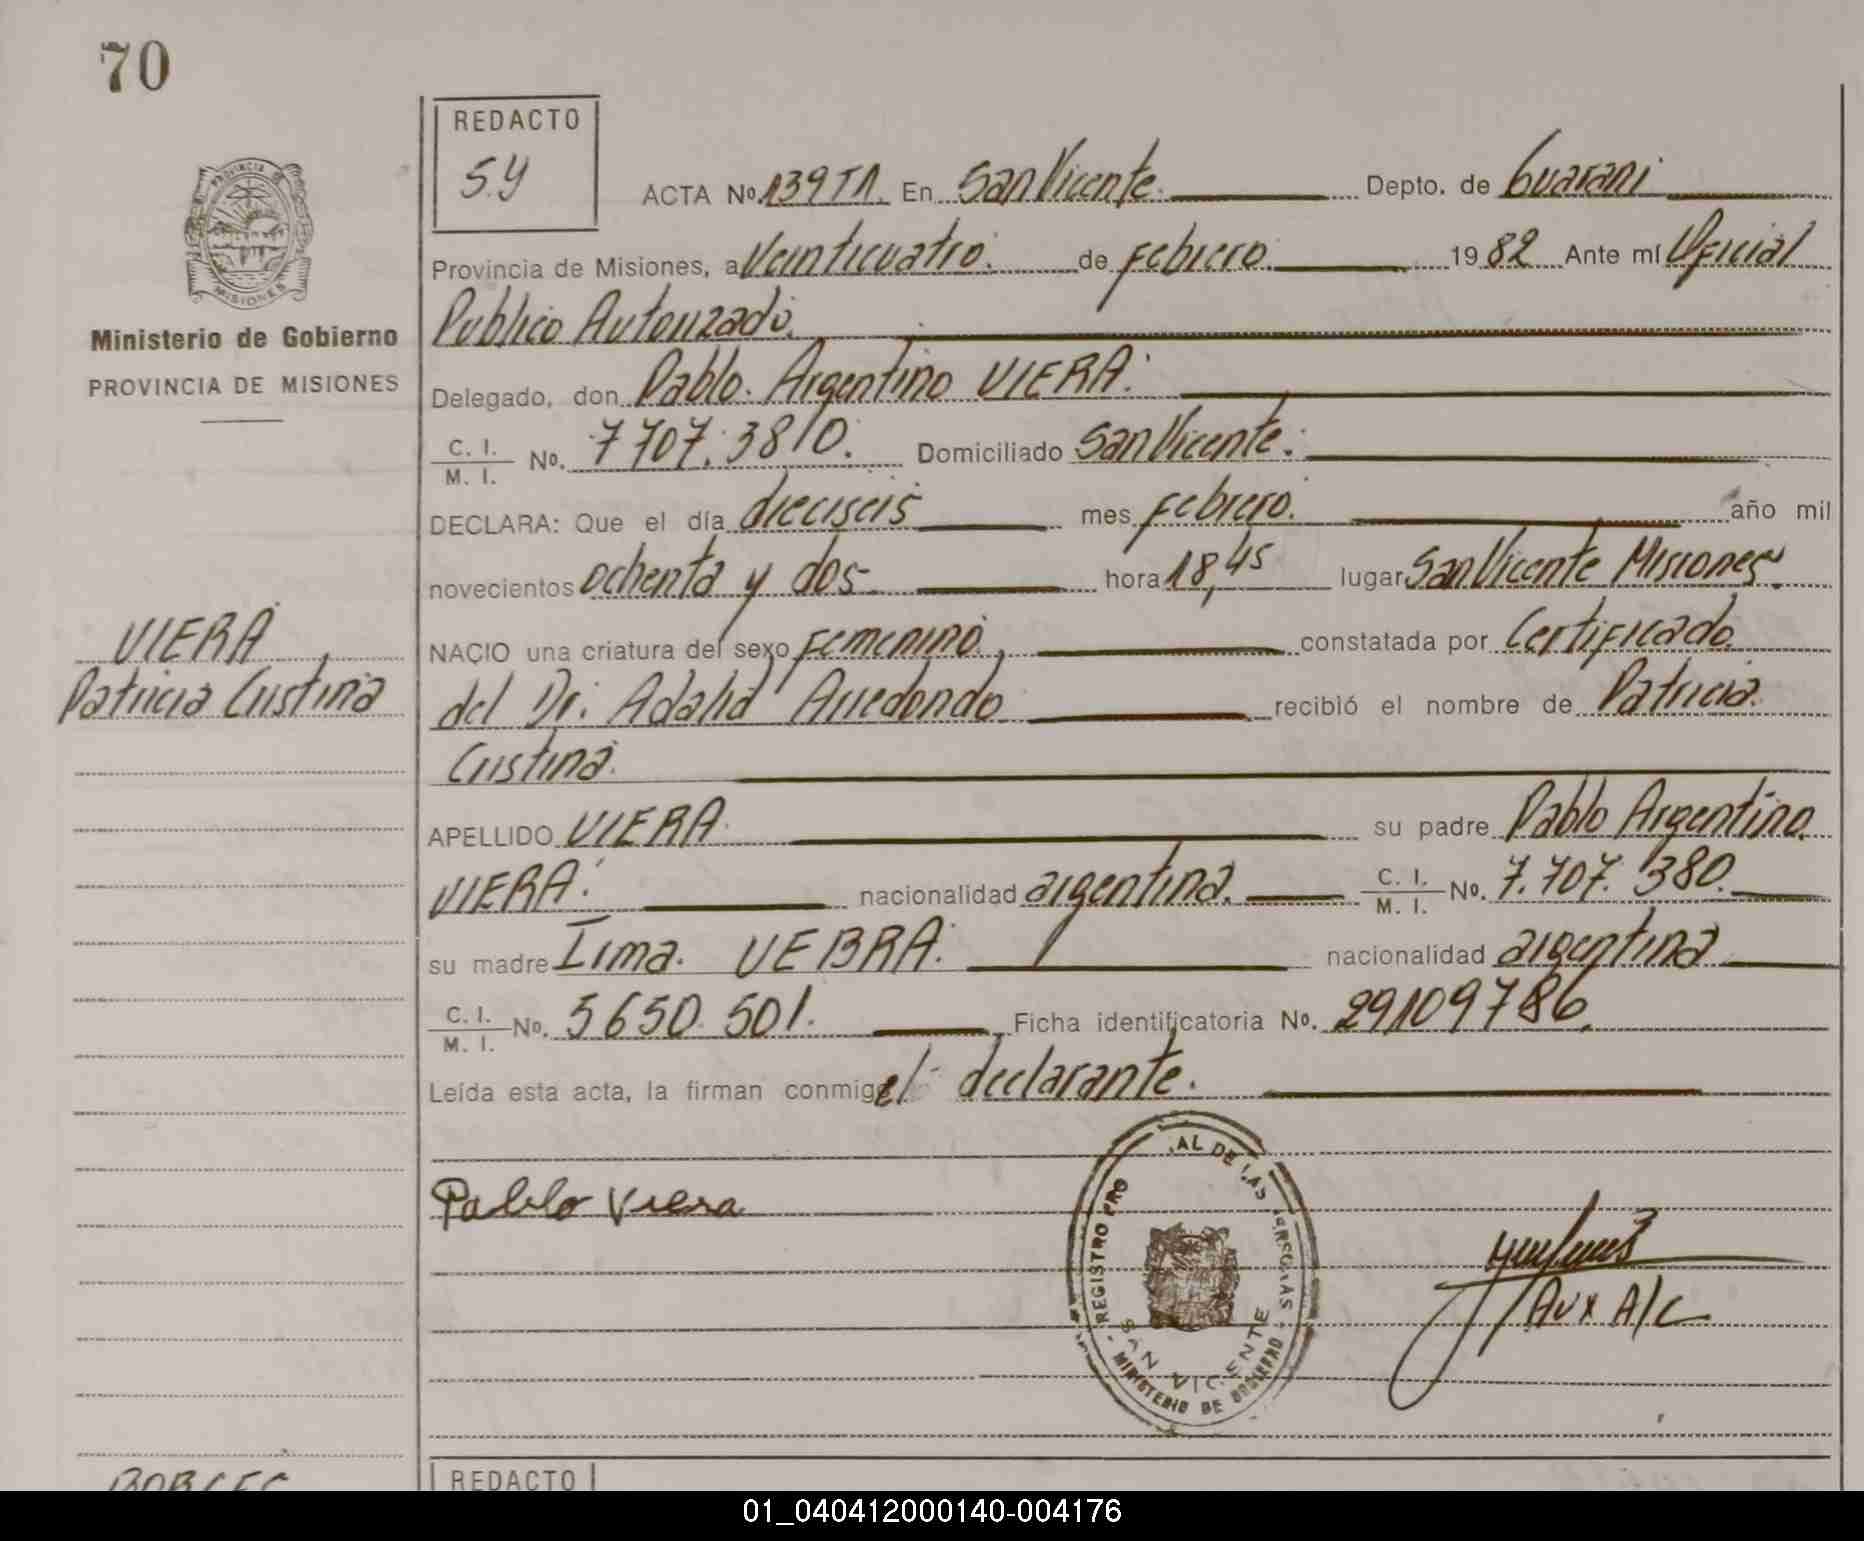 70
REDACTO
S.Y
ACTA No. 139 T1. En San Vicente. Depto. de Guarani
Provincia de Misiones, a Veinticuatro. de Febrero. 1982 Ante mí Oficial
Publico Autorizado.
Delegado, don Pablo. Argentino VIERA.
C. I. / M. I. No. 7707.3810. Domiciliado San Vicente.
DECLARA: Que el día dieciseis mes Febrero. año mil
novecientos ochenta y dos hora 18,45 lugar San Vicente Misiones.
NACIO una criatura del sexo Femenino, constatada por Certificado
del Dr. Adalid Arredondo recibió el nombre de Patricia.
Cristina.
APELLIDO VIERA. su padre Pablo Argentino.
VIERA. nacionalidad argentina. C. I. / M. I. No. 7.707.380.
su madre Irma. VEBRA. nacionalidad argentina
C. I. / M. I. No. 5650.501. Ficha identificatoria No. 29109786.
Leída esta acta, la firman conmigo el declarante.
Pablo Viera
Aux A/C
REGISTRO PRO AL DE LAS PERSONAS
SAN VICENTE
MINISTERIO DE GOBIERNO
PROVINCIA DE
MISIONES
Ministerio de Gobierno
PROVINCIA DE MISIONES
VIERA
Patricia Cristina
BORGES
REDACTO
01_040412000140-004176